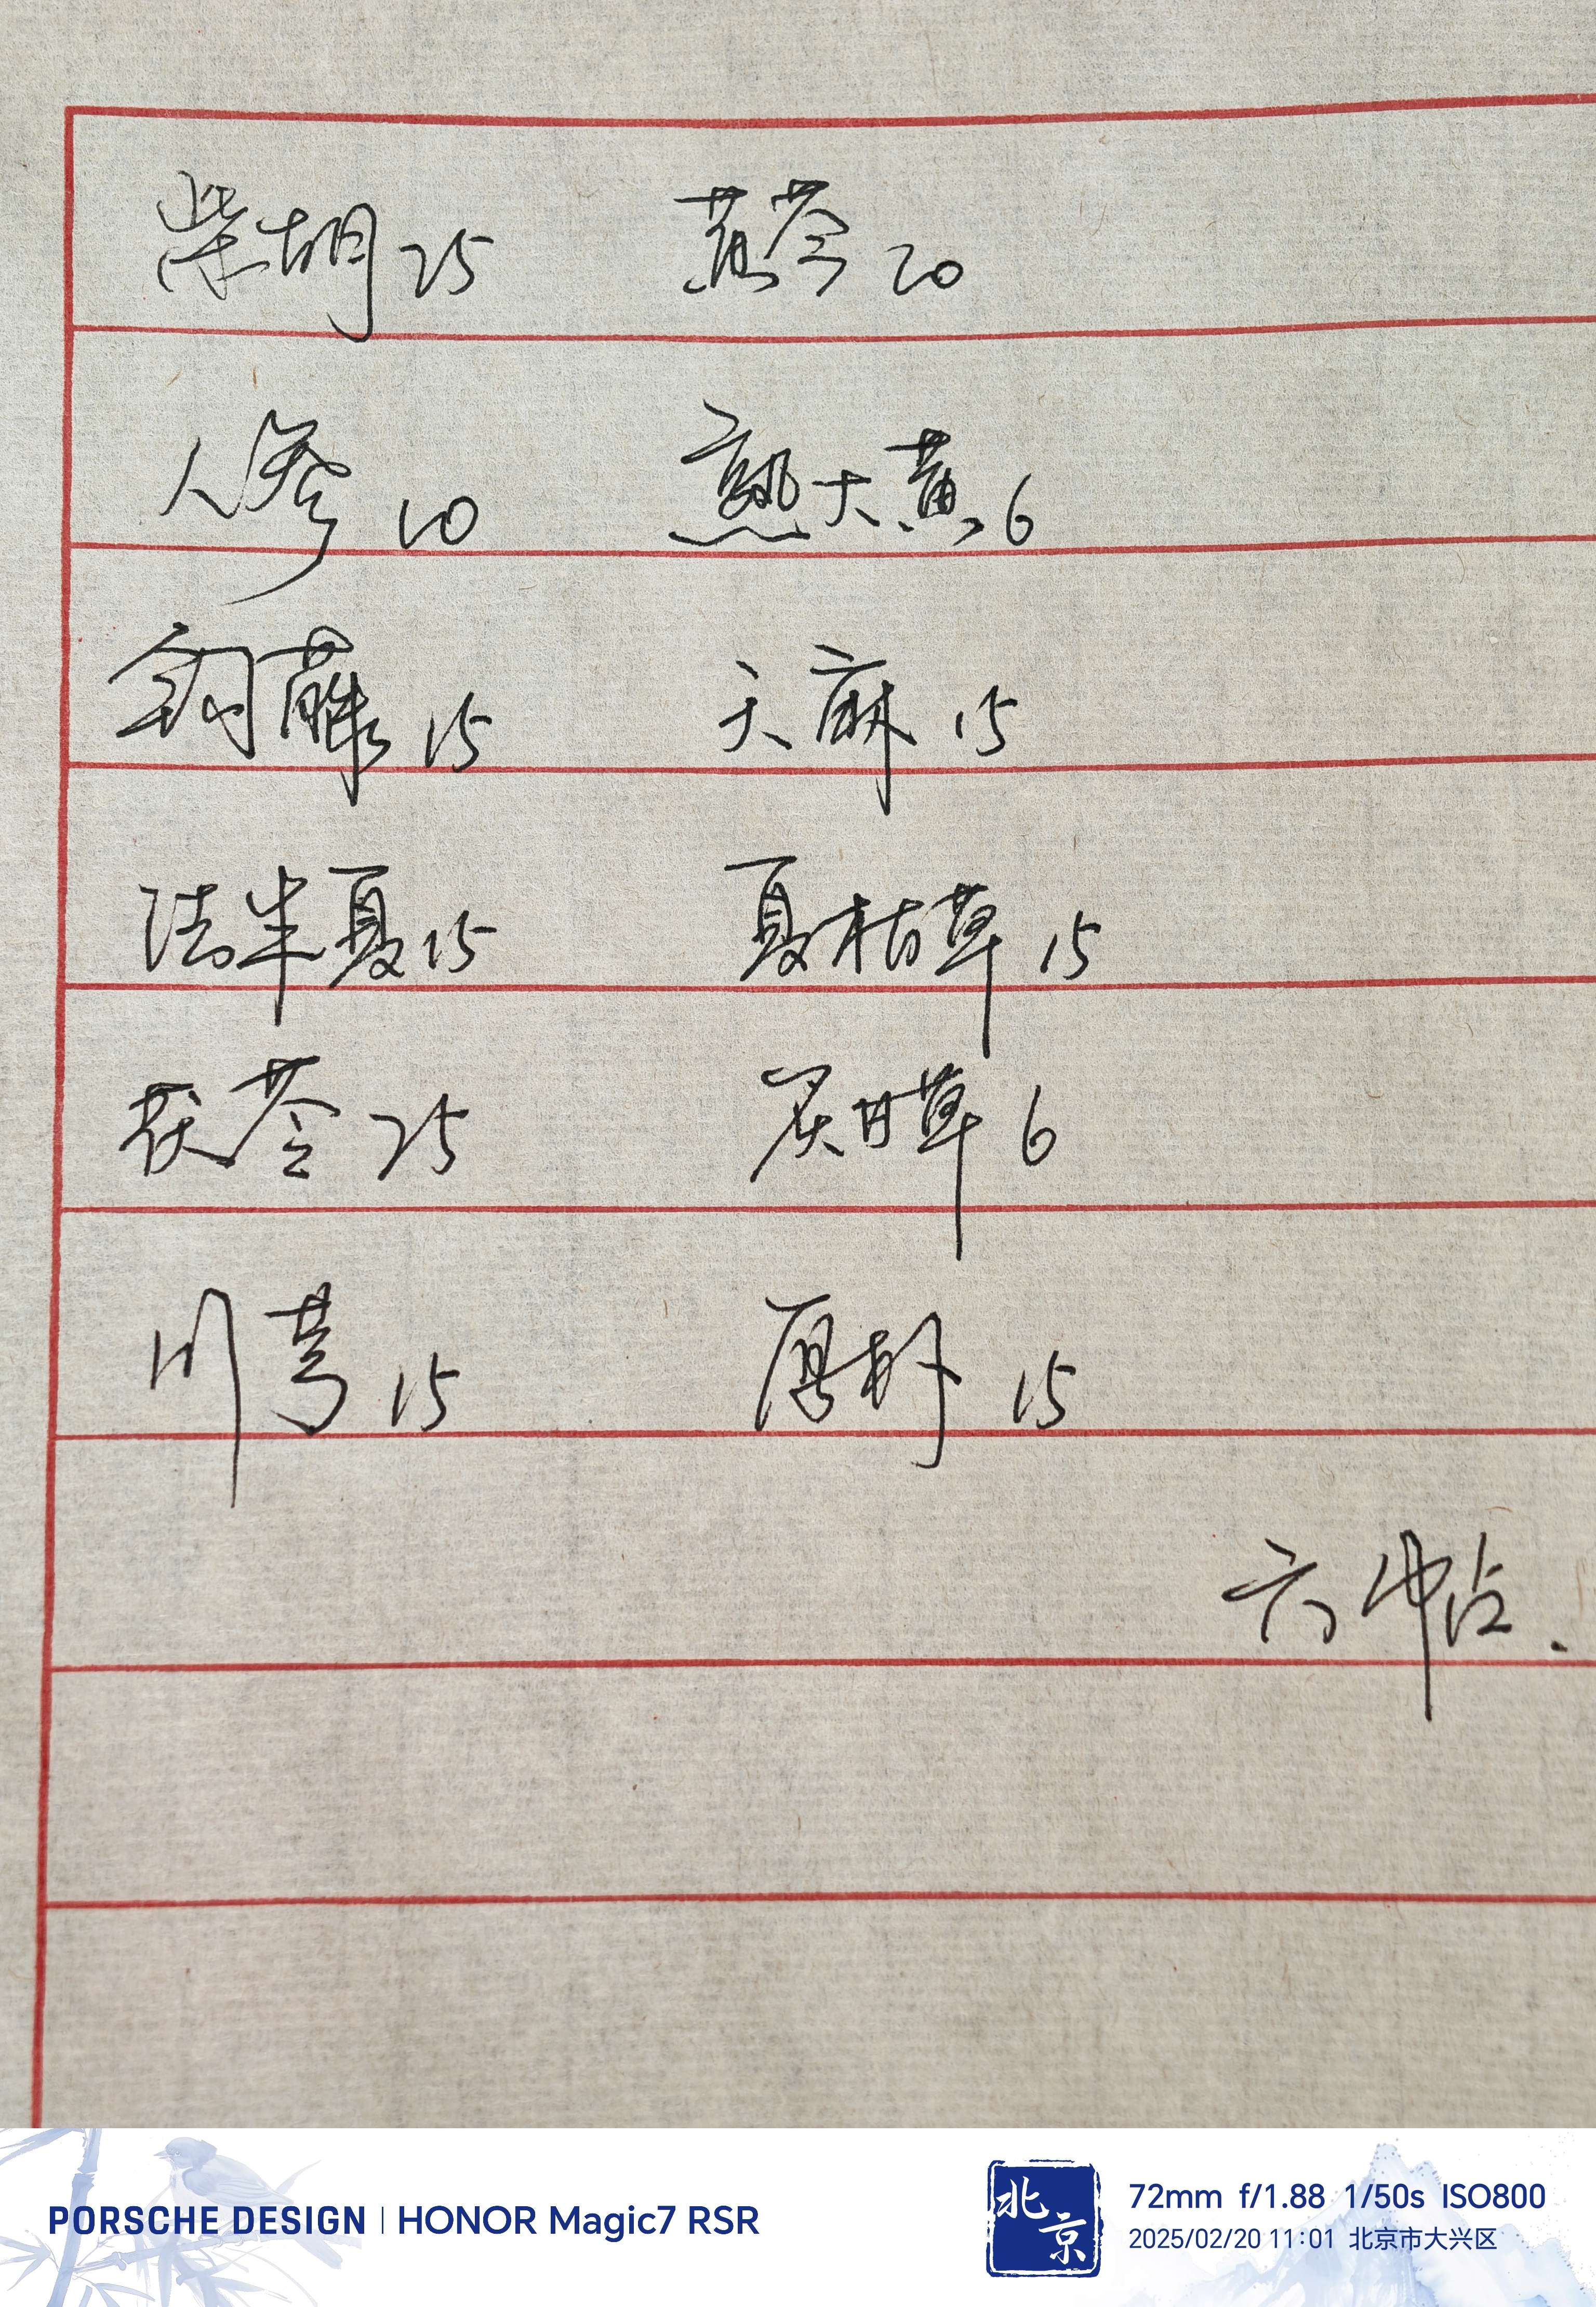 柴胡25 黄芩20
人参10 熟大黄6
钩藤15 天麻15
法半夏15 夏枯草15
茯苓25 炙甘草6
川芎15 厚朴15
六帖.
PORSCHE DESIGN | HONOR Magic7 RSR
北京
72mm f/1.88 1/50s ISO800
2025/02/20 11:01 北京市大兴区